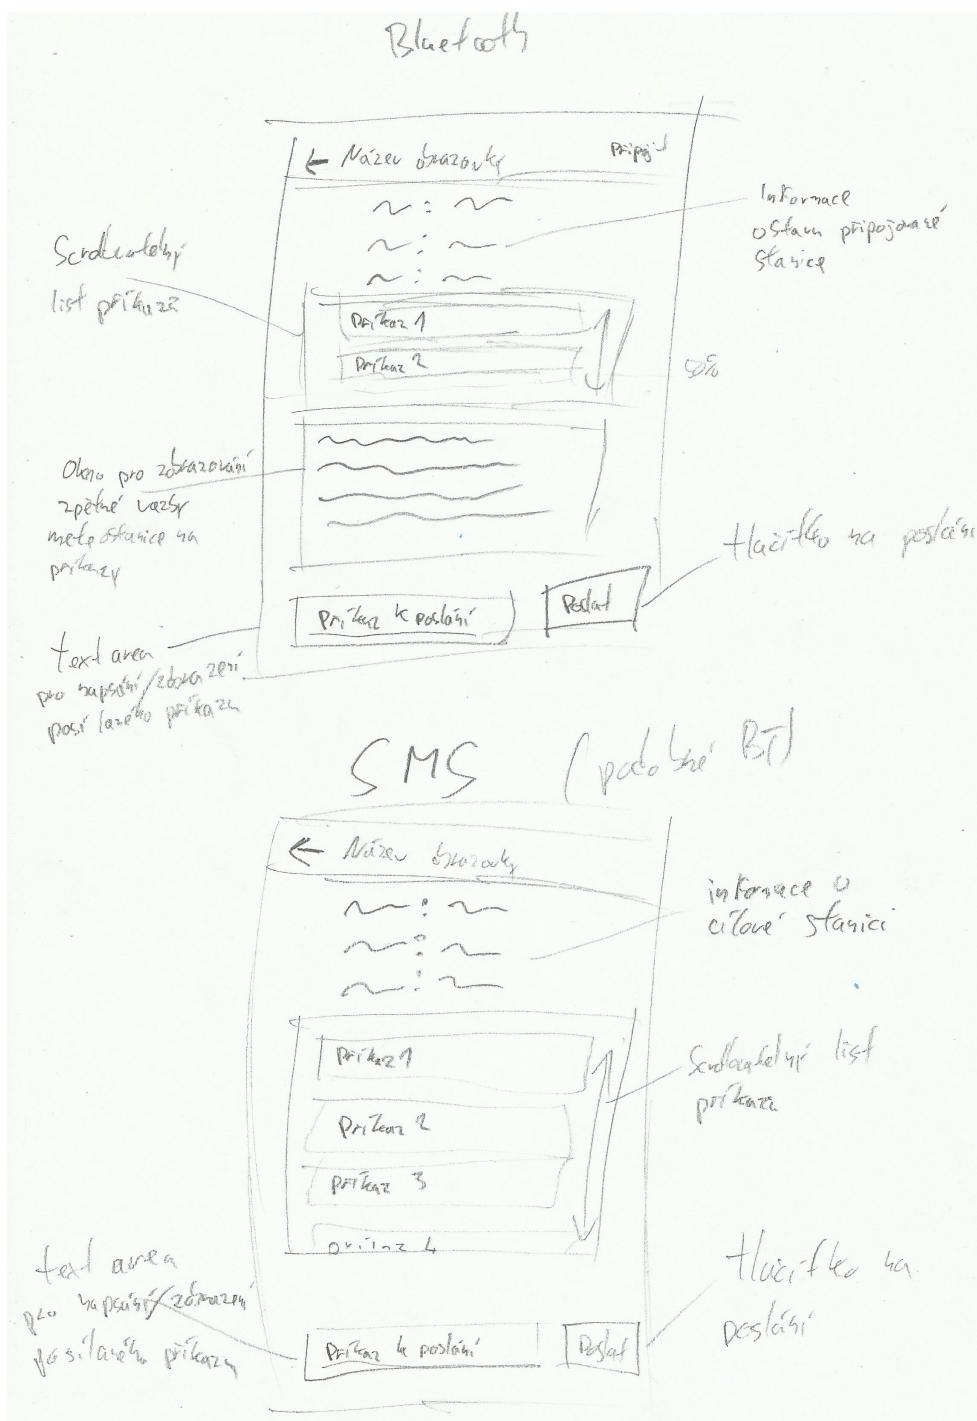 Bluetooth
← Název obrazovky
Připojit
Informace
o stavu připojované
stanice
Scrollovatelný
list příkazů
Příkaz 1
Příkaz 2
50%
Okno pro zobrazování
zpětné vazby
meteostanice na
příkazy
tlačítko na poslání
Příkaz k poslání
Poslat
text area
pro napsání/zobrazení
posílaného příkazu
SMS (podobné BT)
← Název obrazovky
informace o
cílové stanici
Příkaz 1
Příkaz 2
Příkaz 3
příkaz 4
Scrollovatelný list
příkazů
text area
pro napsání/zobrazení
posílaného příkazu
tlačítko na
poslání
Příkaz k poslání
Poslat